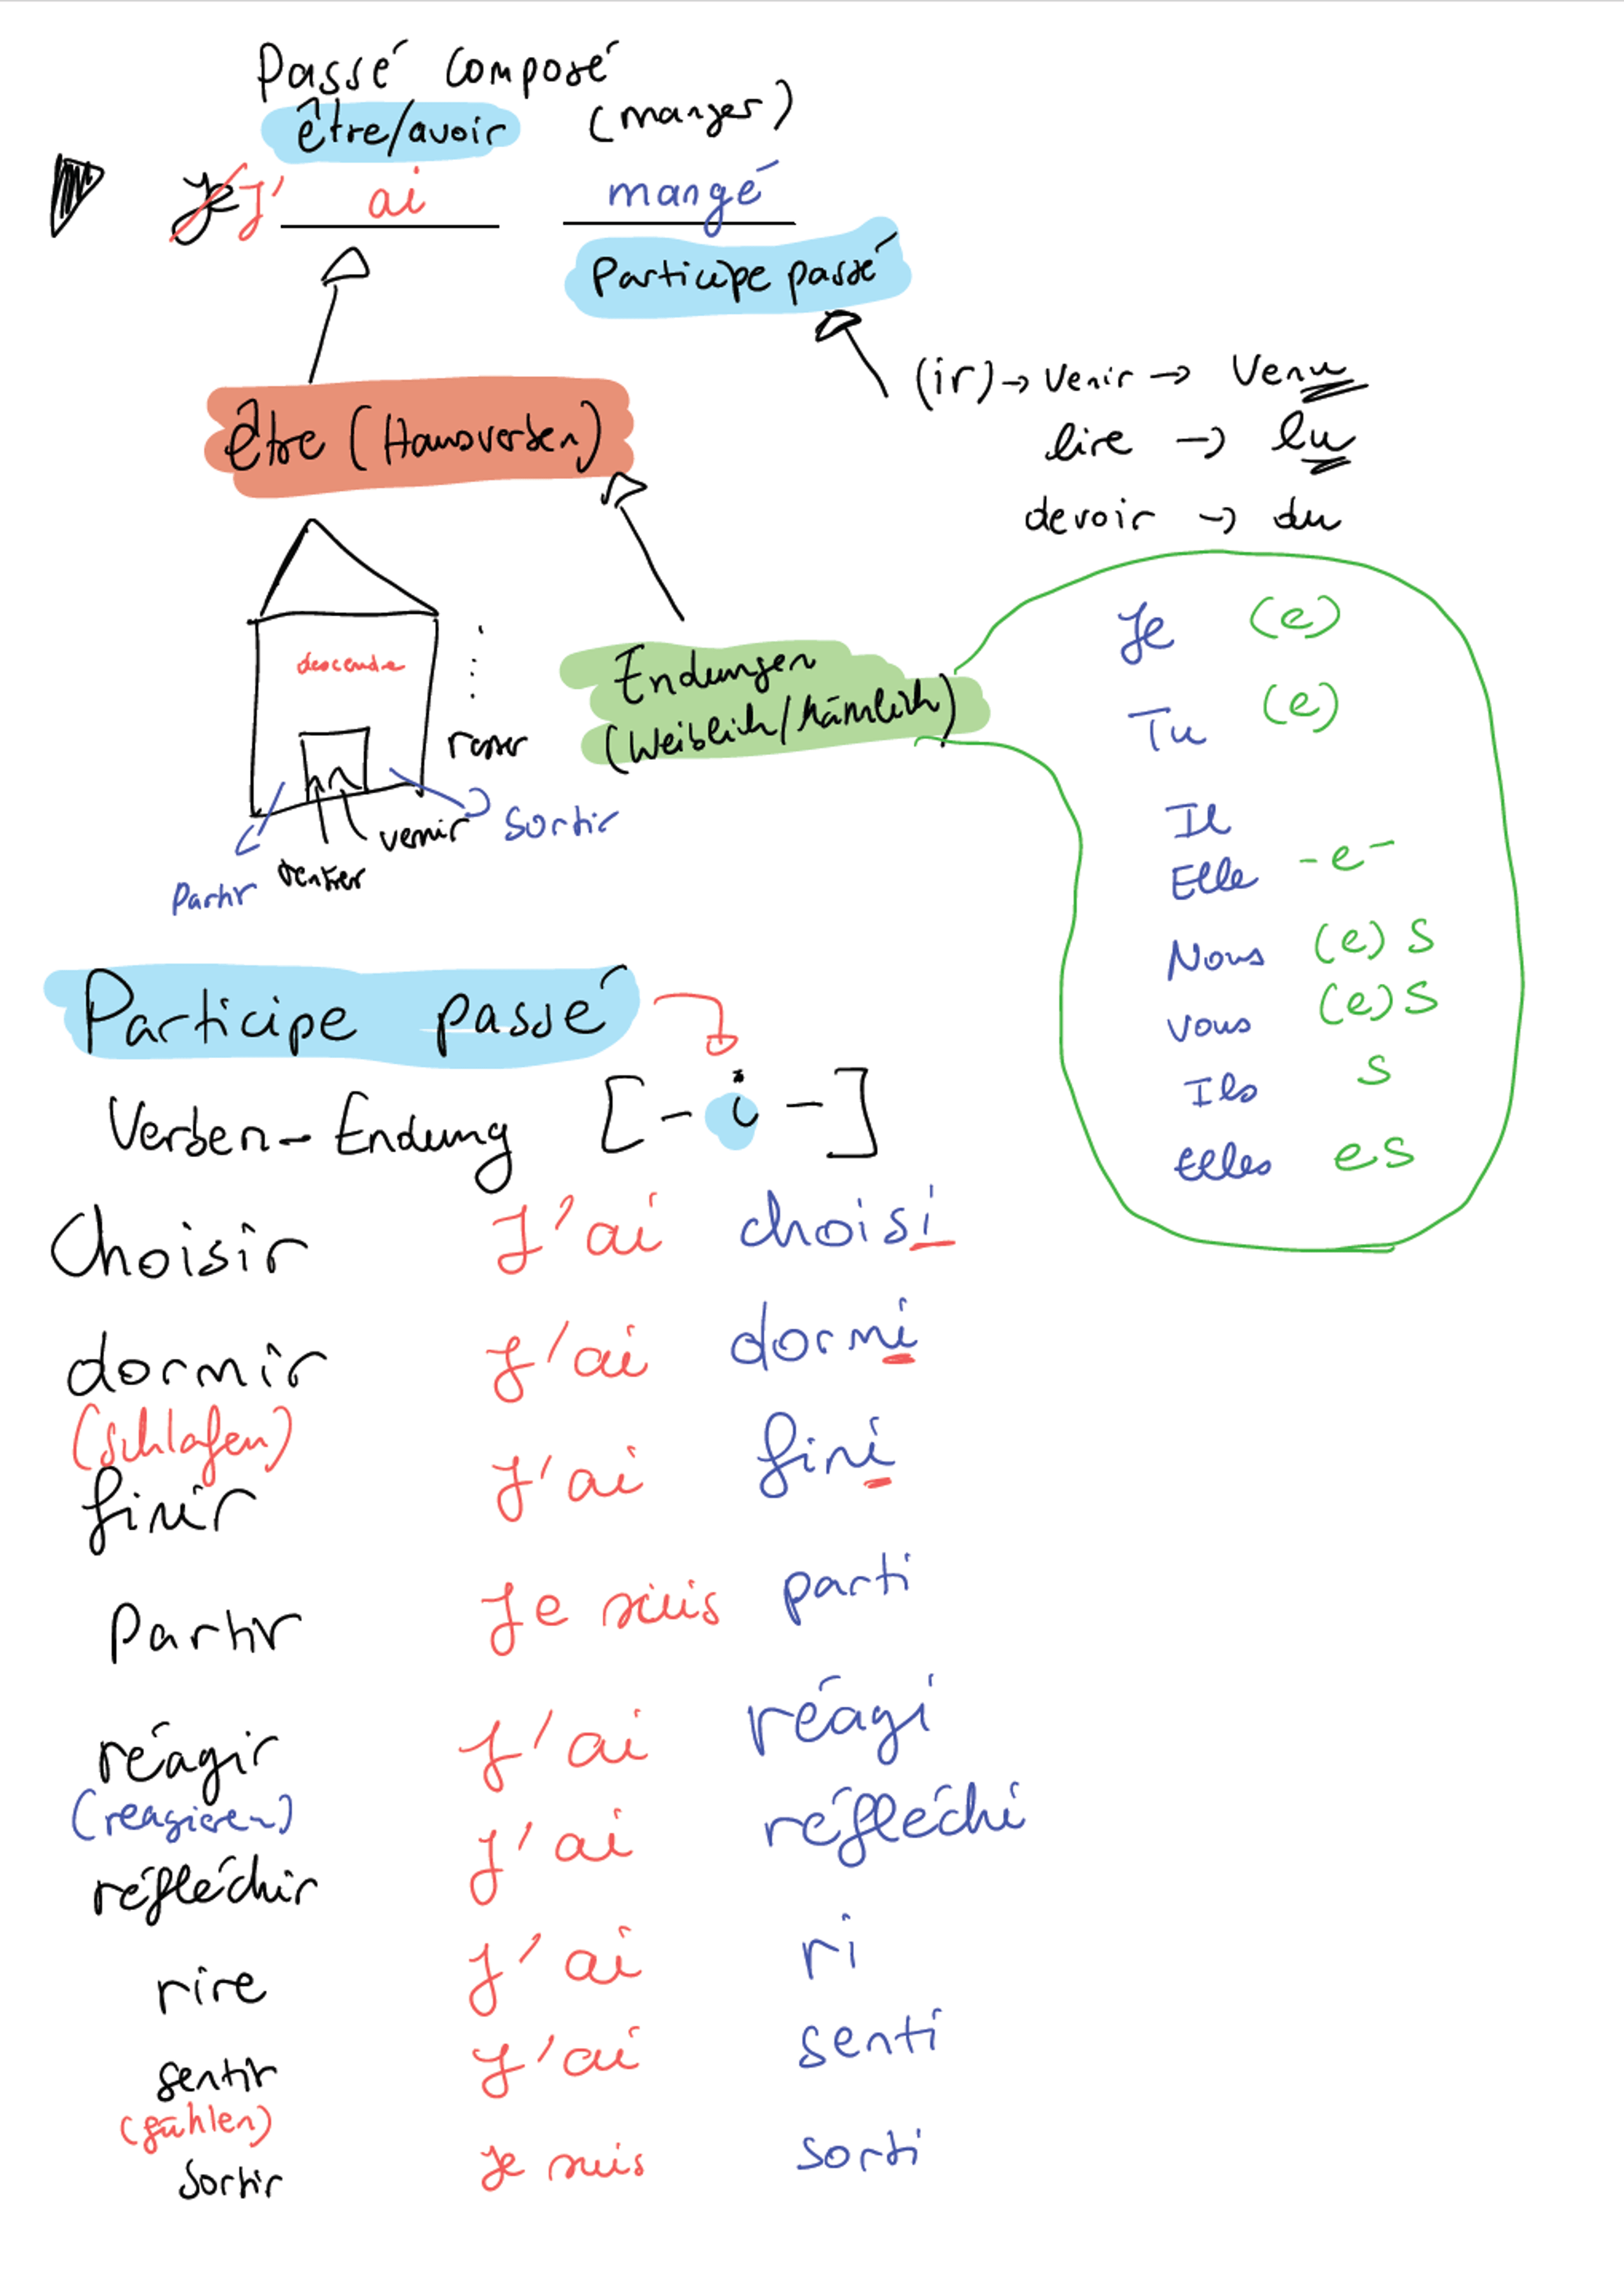 Passé Composé
être/avoir (manger)
Je J' ai mangé
Participe passé
(ir) → venir → Venu
lire → lu
devoir → du
être (Hausverben)
descendre
venir
Sortir
Partir
rentrer
Endungen
(Weiblich/Mämlich)
Je (e)
Tu (e)
Il
Elle -e-
Nous (e) s
vous (e) s
Ils s
Elles es
Participe passé
Verben-Endung [- i -]
Choisir J'ai choisi
dormir J'ai dormi
(schlafen)
finir J'ai fini
Partir Je suis parti
réagir J'ai réagi
(reagieren)
réfléchir J'ai réfléchi
rire J'ai ri
sentir J'ai senti
(fühlen)
Sortir Je suis sorti